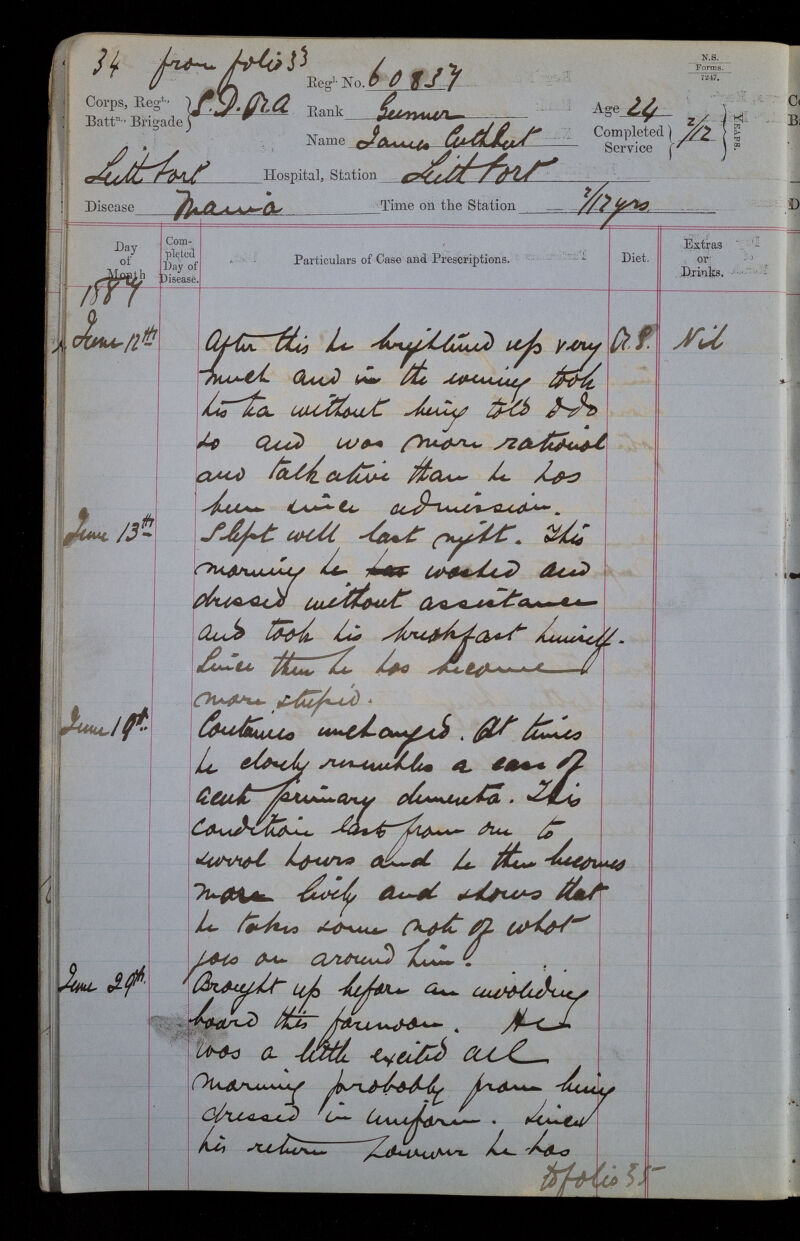 34 from folio 33
N.S.
Forms.
7247.
Regl. No. 60837
Corps, Regt.,
Battn., Brigade } S.D.R.A
Rank Gunner
Age 24
Name James Cuthbert
Completed
Service } 2/12 } YEARS.
Leith Fort Hospital, Station Leith Fort
Disease Mania Time on the Station 2/12 yrs
Day of Month
Completed Day of Disease.
Particulars of Case and Prescriptions.
Diet.
Extras or Drinks.
1887
June 12th After this he brightened up very R.S. Nil
much and in the evening took
his tea without being told to do
so and was more rational
and talkative than he has
been since admission.
June 13th Slept well last night. This
morning he has washed and
dressed without assistance
and took his breakfast himself.
Since then he has become
more stupid.
June 19th. Continues unchanged. At times
he closely resembles a case of
acute primary dementa. This
condition lasts from one to
several hours and he then becomes
more lively and shows that
he takes some note of what
goes on around him.
June 29th. Brought up before an invaliding
board this forenoon. He
was a little excited all
morning probably from being
dressed in uniform. Since
his return however he has
to folio 35